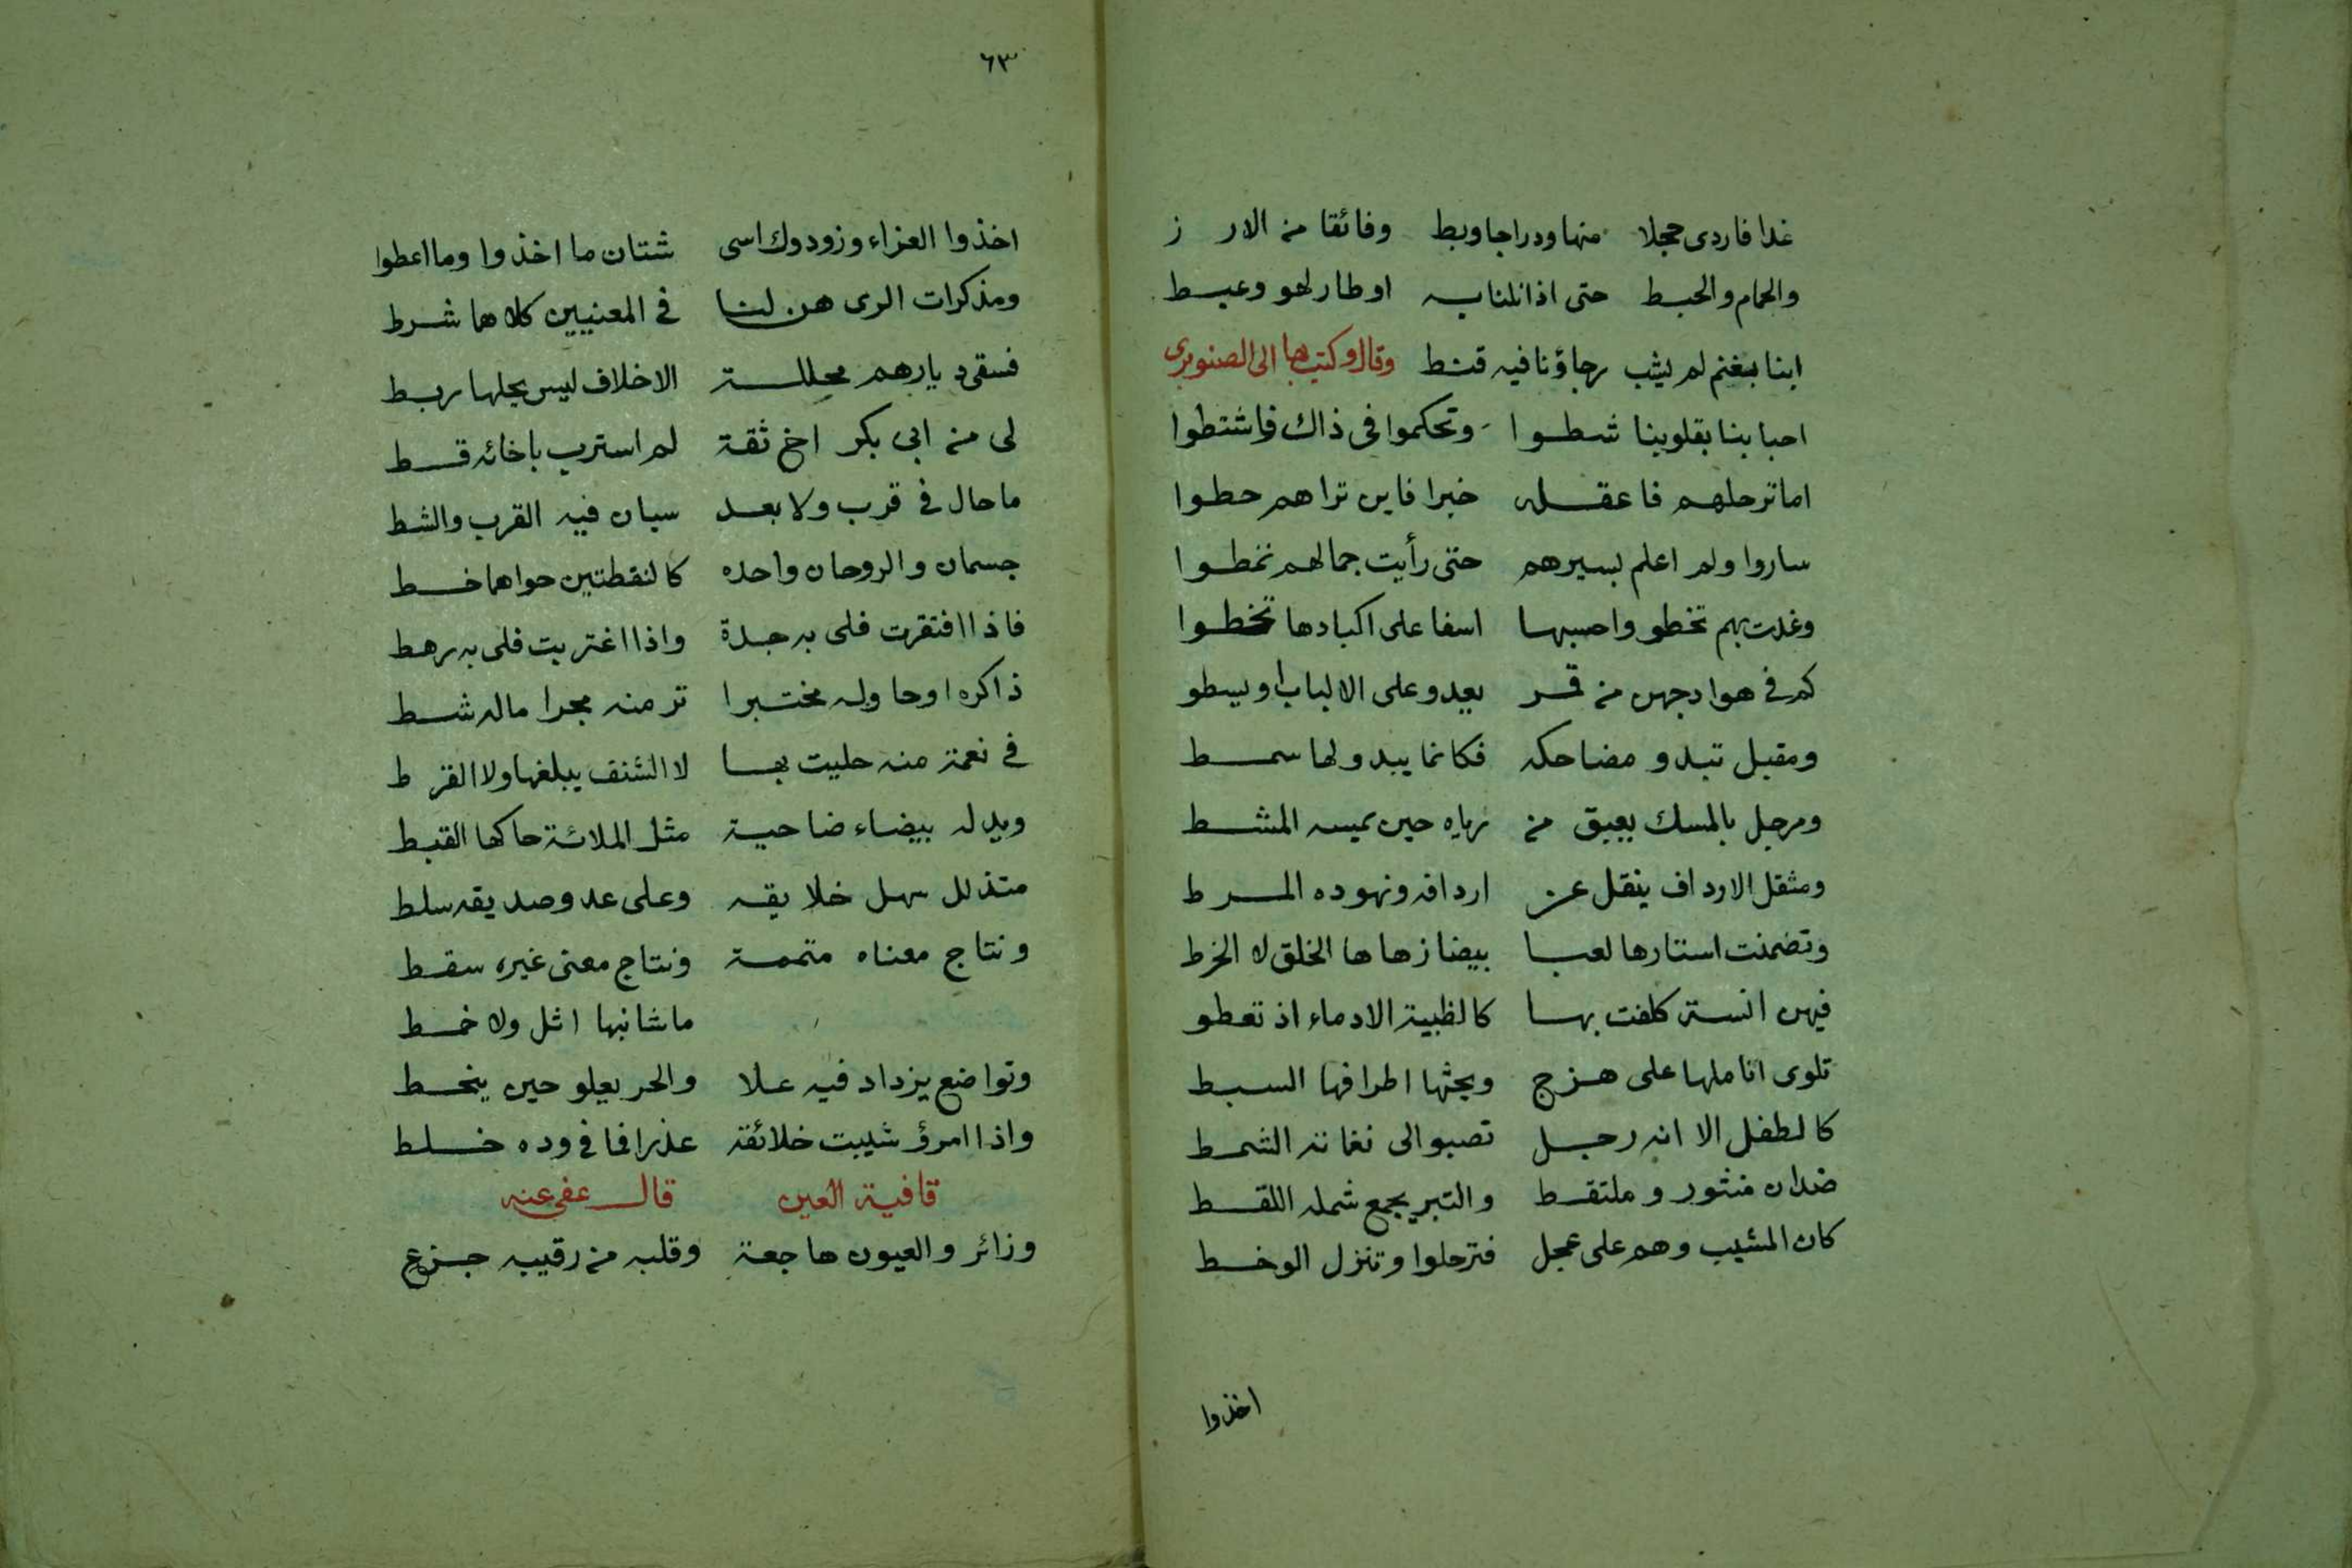 غدا فاردى حجلا منها ودراجا وبط وفائقا من الار ز
والحمام والحبط حتى اذا نلنا به اوطار لهو وعبط
ابنا بغنم لم يشب رجاؤنا فيه قنط وقال وكتب بها الى الصنوبرى
احبابنا بقلوبنا شطوا وتحكموا فى ذاك فاشتطوا
اما ترحلهم فاعقله خبرا فاين تراهم حطوا
ساروا ولم اعلم بسيرهم حتى رأيت جمالهم تخطوا
وغدت بهم تخطو واحسبها اسفا على اكبادها تخطوا
كم فى هوادجهن من قمر يعدو على الالباب او يسطو
ومقبل تبدو مضاحكه فكانما يبدو لها سمط
ومرجل بالمسك يعبق من رياه حين يميسه المشط
ومثقل الارداف ينقل عن اردافه ونهوده المرط
وتضمنت استارها لعبا بيضا زهاها الخلق لا الخرط
فيهن انسة كلفت بها كالظبية الادماء اذ تعطو
تلوى اناملها على هزج ويحثها اطرافها السبط
كالطفل الا انه رجل تصبو الى نغاته الشمط
ضدان منثور وملتقط والتبر يجمع شمله اللقط
كان المشيب وهم على عجل فترحلوا وتنزل الوخط
اخذوا
٦٣
اخذوا العزاء وزودوك اسى شتان ما اخذوا وما اعطوا
ومذكرات الرى هن لنا فى المعنيين كلاهما شرط
فسقى ديارهم محللة الاخلاف ليس يحلها ربط
لى من ابى بكر اخ ثقة لم استرب باخائه قط
ما حال فى قرب ولا بعد سيان فيه القرب والشط
جسمان والروحان واحده كالنقطتين حواهما خط
فاذا افتقرت فلى به جدة واذا اغتربت فلى به رهط
ذاكره او حاوله مختبرا تر منه بحرا ماله شط
فى نعمة منه حليت بها لا الشنف يبلغها ولا القر ط
ويد له بيضاء ضاحية مثل الملائة حاكها القبط
متذلل سهل خلايقه وعلى عدو صديقه سلط
ونتاج معناه متممة ونتاج معنى غيره سقط
ما شانها اثل ولا خمط
وتواضع يزداد فيه علا والحر يعلو حين ينحط
واذا امرؤ شيبت خلائقه عذرا فما فى وده خلط
قافية العين قال عفى عنه
وزائر والعيون هاجعة وقلبه من رقيبه جزع